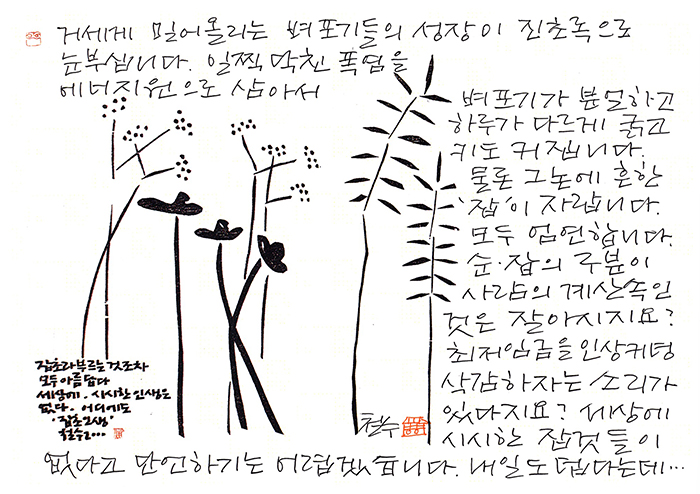 거세게 밀어올리는 벼포기들의 성장이 진초록으로
눈부십니다. 일찍 닥친 폭염을
에너지원으로 삼아서
벼포기가 분얼하고
하루가 다르게 굵고
키도 커집니다.
물론 그논에 흔한
'잡'이 자랍니다.
모두 엄연합니다.
순·잡의 구분이
사람의 계산속인
것은 잘아시지요?
최저임금을 인상커녕
삭감하자는 소리가
있다지요? 세상에
시시한 잡것들이
없다고 단언하기는 어렵겠습니다. 내일도 덥다는데…
잡초라 부르는 것조차
모두 아름답다
세상에. 시시한 인생은
없다. 어디에도
'잡초인생'
철수